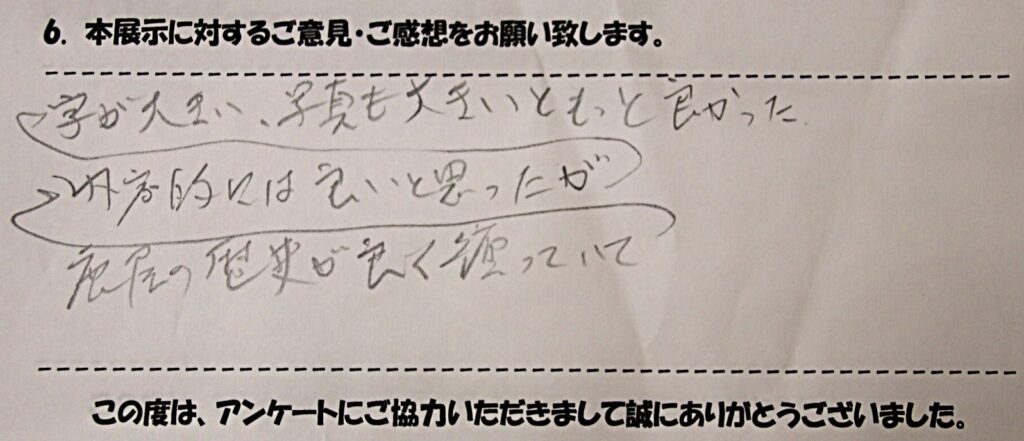 6. 本展示に対するご意見・ご感想をお願い致します。
字が大きい、写真も大きいともっと良かった
内容的には良いと思ったが
鹿屋の歴史が良く纏っていて
この度は、アンケートにご協力いただきまして誠にありがとうございました。